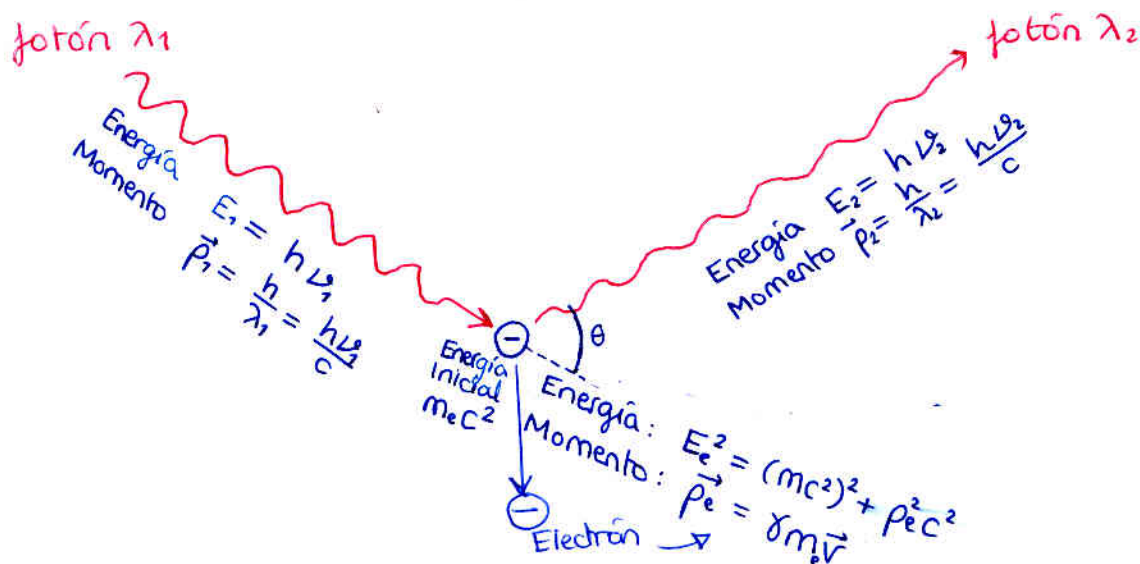 fotón λ1
fotón λ2
Energía E₁ = hν₁
Momento p⃗₁ = h/λ₁ = hν₁/c
Energía E₂ = hν₂
Momento p⃗₂ = h/λ₂ = hν₂/c
θ
Energía
Inicial
mₑc²
Energía: Eₑ² = (mc²)² + pₑ²c²
Momento: p⃗ₑ = γmₑv⃗
Electrón